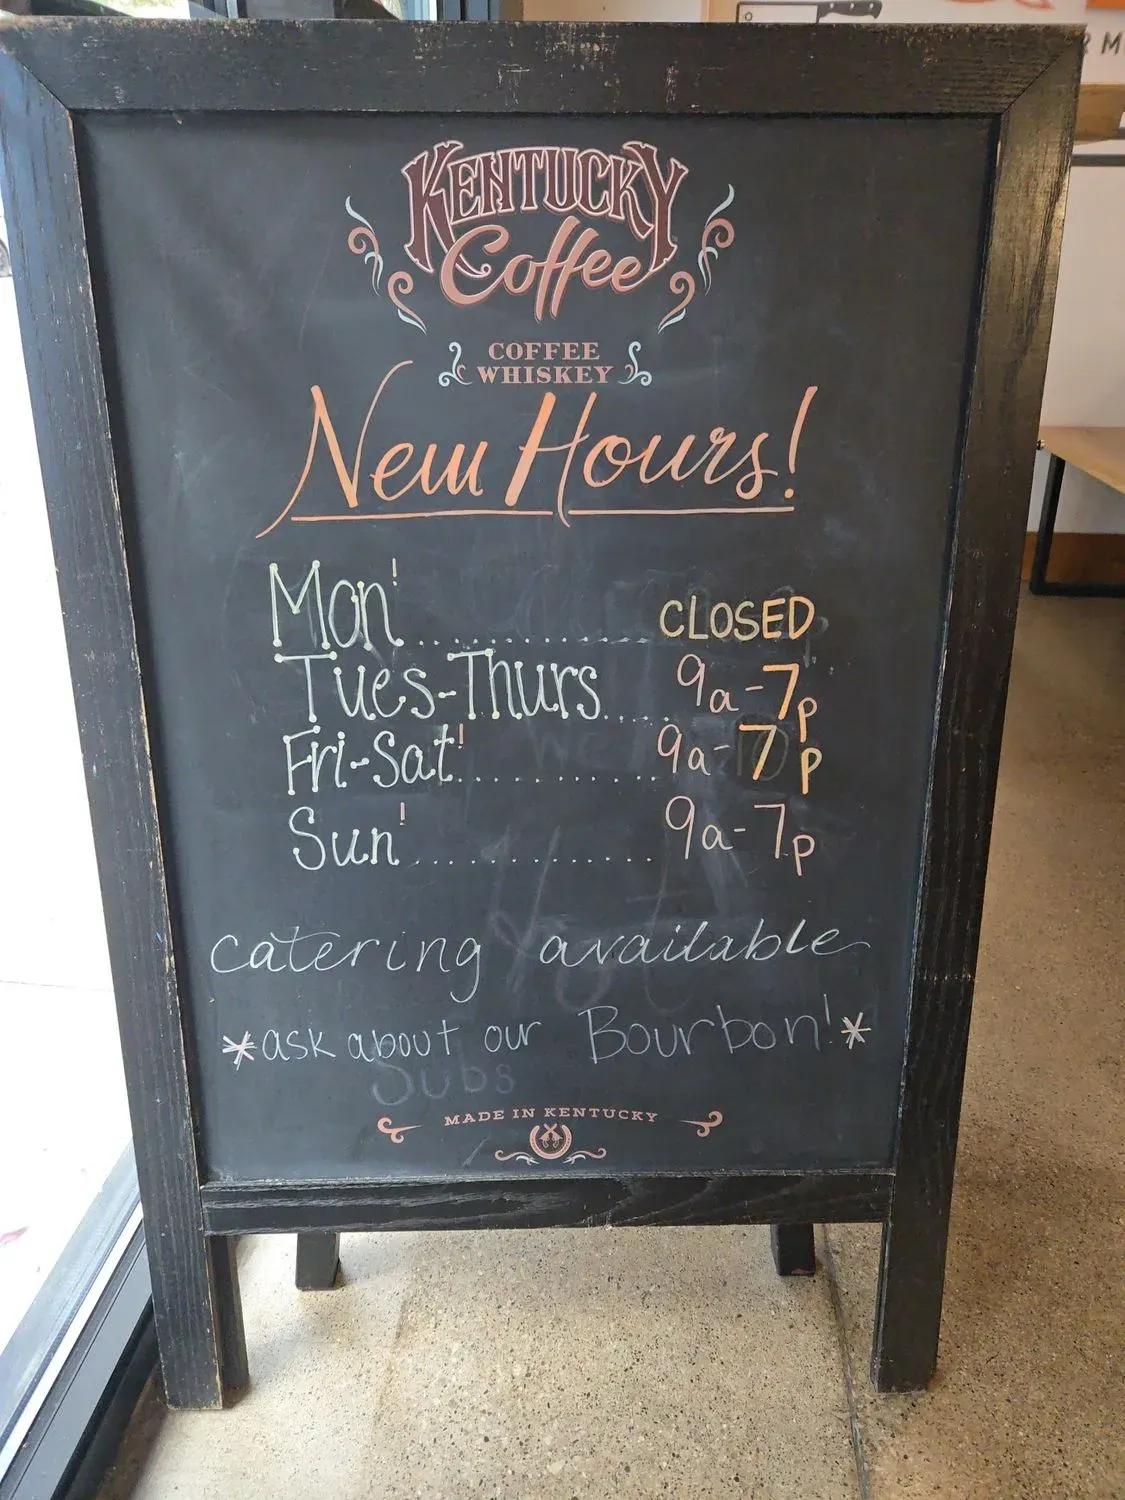 KENTUCKY
Coffee
COFFEE
WHISKEY
New Hours!
Mon'............... CLOSED
Tues-Thurs..... 9a-7p
Fri-Sat'............. 9a-7p
Sun'............... 9a-7p
catering available
*ask about our Bourbon!*
Subs
MADE IN KENTUCKY